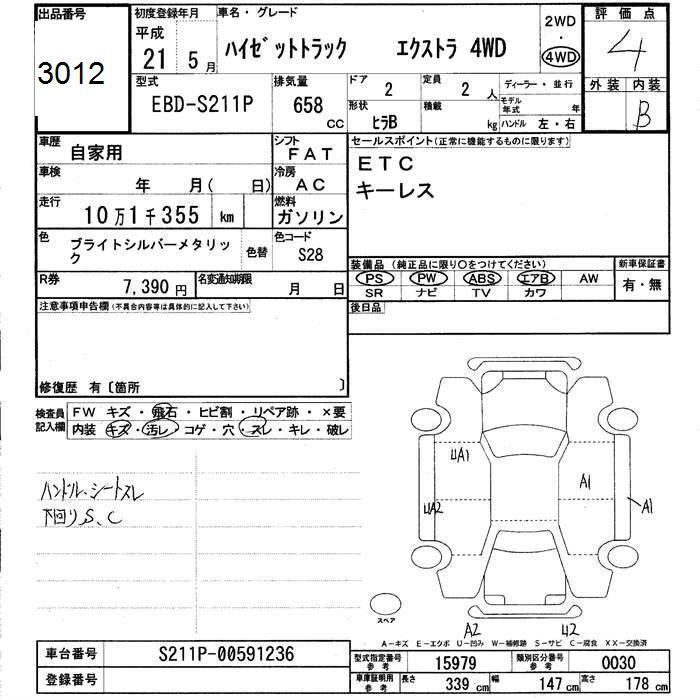 出品番号
3012
初度登録年月
平成
21 5月
車名・グレード
ハイゼットトラック エクストラ 4WD
2WD
・
4WD
評価点
4
外装 内装
B
型式
EBD-S211P
排気量
658
CC
ドア
2
定員
2 人
形状
ヒラB
積載
kg
ディーラー・並行
モデル年式 年
ハンドル 左・右
車歴
自家用
シフト
FAT
車検
年 月( 日)
冷房
AC
走行
10万1千355 km
燃料
ガソリン
色
ブライトシルバーメタリック
色替
色コード
S28
R券
7,390 円
名変通知期限
月 日
セールスポイント(正常に機能するものに限ります)
ETC
キーレス
装備品(純正品に限り〇をつけてください)
PS PW ABS エアB AW
SR ナビ TV カワ
新車保証書
有・無
後日品
注意事項申告欄(不具合内容等は具体的に記入して下さい)
修復歴 有〔箇所 〕
検査員記入欄
FW キズ・飛石・ヒビ割・リペア跡・×要
内装 キズ・汚レ・コゲ・穴・スレ・キレ・破レ
ハンドル、シートスレ
下回りS、C
4A1
A1
4A2
A1
A2
42
スペア
A−キズ E−エクボ U−凹み W−補修跡 S−サビ C−腐食 XX−交換済
車台番号
S211P-00591236
登録番号
型式指定番号
参考
15979
類別区分番号
参考
0030
車庫証明用
参考
長さ 339 cm 幅 147 cm 高さ 178 cm